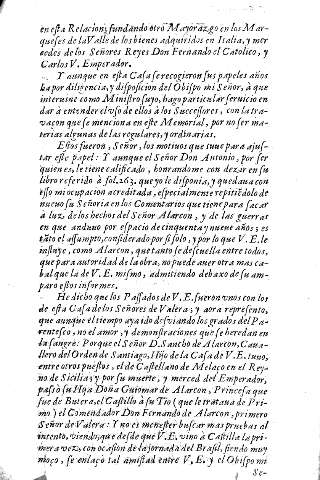 en esta Relacion; fundando otro Mayorazgo en los Mar-
queses de la Valle de los bienes adquiridos en Italia, y mer-
cedes de los Señores Reyes Don Fernando el Catolico, y
Carlos V. Emperador.
Y aunque en esta Casa se recogieron sus papeles años
ha por diligencia, y disposicion del Obispo mi Señor, à que
intervine como Ministro suyo, hago particular servicio en
dar à entender el uso de ellos à los Successores, con la tra-
vaçon que se menciona en este Memorial, por no ser ma-
terias algunas de las regulares, y ordinarias.
Estos fueron, Señor, los motivos que tuve para ajus-
tar este papel: Y aunque el Señor Don Antonio, por ser
quien es, le tiene calificado, honrandome con dezar en su
libro referido à fol. 263. que yo le disponia, y quedava con
esso mi ocupacion acreditada, especialmente repitiendolo de
nuevo su Señoria en los Comentarios que tiene para sacar
à luz, de los hechos del Señor Alarcon, y de las guerras
en que anduvo por espacio de cinquenta y nueve años; es
tãto el assumpto, considerado por sì solo, y por lo que V. E. le
incluye, como Alarcon, que tanto se descuella entre todos,
que para autoridad de la obra, no puede aver otra mas ca-
bal que la de V. E. mismo, admitiendo debaxo de su am-
paro estos informes.
He dicho que los Passados de V. E. fueron unos con los
de esta Casa de los Señores de Valera; y aora represento,
que aunque el tiempo aya ido desviando los grados del Pa-
rentesco, no el amor, y demonstraciones que se heredan en
la sangre: Porque el Señor D. Sancho de Alarcon, Cava-
llero del Orden de Santiago, Hijo de la Casa de V. E. tuvo,
entre otros puestos, el de Castellano de Melaço en el Rey-
no de Sicilia; y por su muerte, y merced del Emperador,
passò su Hija Doña Guiomar de Alarcon, Princesa que
fue de Butera, el Castillo à su Tio (que le tratava de Pri-
mo) el Comendador Don Fernando de Alarcon, primero
Señor de Valera: Y no es menester buscar mas pruebas al
intento, viendo, que desde que V. E. vino à Castilla la pri-
mera vez, con ocasion de la jornada del Brasil, siendo muy
moço, se enlaçò tal amistad entre V. E. y el Obispo mi
Se-